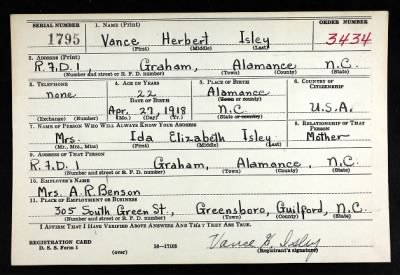 SERIAL NUMBER 1. NAME (Print) ORDER NUMBER
1795 Vance Herbert Isley 3434
(First) (Middle) (Last)
2. ADDRESS (Print)
R.F.D. 1, Graham, Alamance N.C.
(Number and street or R. F. D. number) (Town) (County) (State)
3. TELEPHONE 4. AGE IN YEARS 5. PLACE OF BIRTH 6. COUNTRY OF CITIZENSHIP
none 22 Alamance
DATE OF BIRTH (Town or county)
Apr. 27, 1918 N.C. U.S.A.
(Exchange) (Number) (Mo.) (Day) (Yr.) (State or country)
7. NAME OF PERSON WHO WILL ALWAYS KNOW YOUR ADDRESS 8. RELATIONSHIP OF THAT PERSON
Mrs. Ida Elizabeth Isley Mother
(Mr., Mrs., Miss) (First) (Middle) (Last)
9. ADDRESS OF THAT PERSON
R.F.D. 1 Graham, Alamance, N.C.
(Number and street or R. F. D. number) (Town) (County) (State)
10. EMPLOYER'S NAME
Mrs. A.R. Benson
11. PLACE OF EMPLOYMENT OR BUSINESS
305 South Green St., Greensboro, Guilford, N.C.
(Number and street or R. F. D. number) (Town) (County) (State)
I AFFIRM THAT I HAVE VERIFIED ABOVE ANSWERS AND THAT THEY ARE TRUE.
REGISTRATION CARD
D. S. S. Form 1 (over) 16—17105 Vance H. Isley
(Registrant's signature)